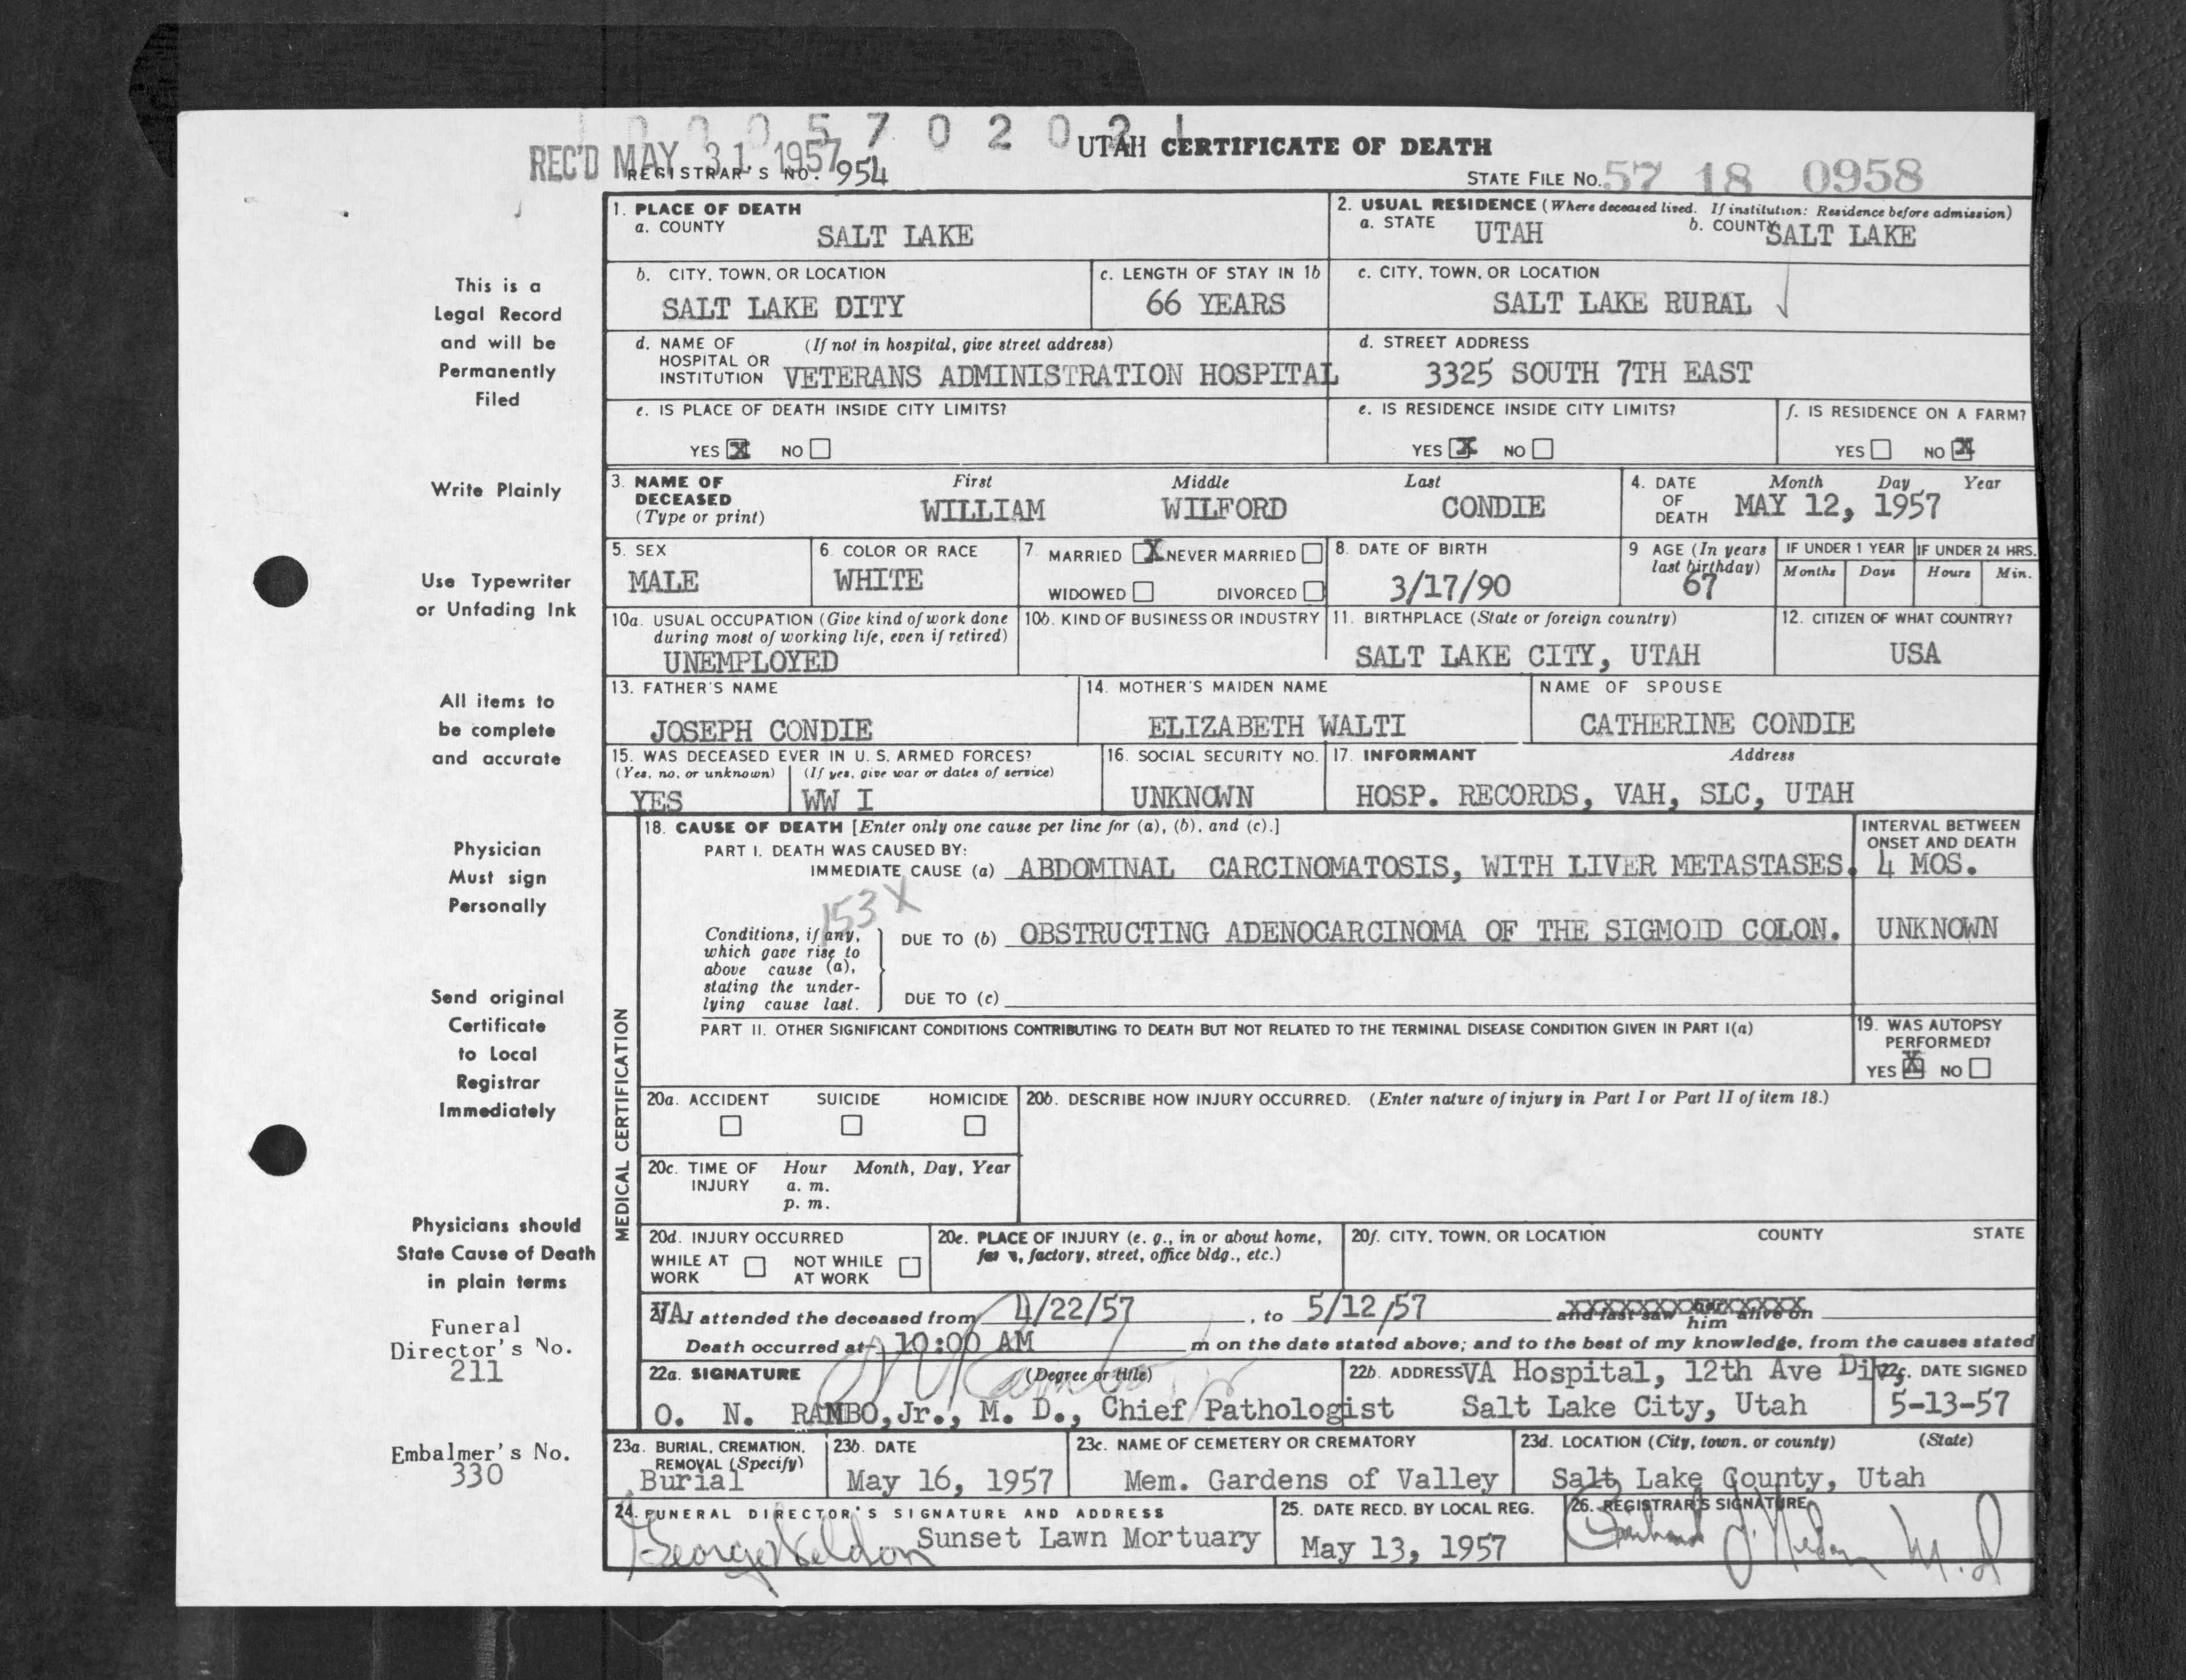 1 0 0 0 5 7 0 2 0 2 1
UTAH CERTIFICATE OF DEATH
REC'D MAY 31 1957
REGISTRAR'S NO. 954
STATE FILE NO. 57 18 0958
1. PLACE OF DEATH
a. COUNTY SALT LAKE
2. USUAL RESIDENCE (Where deceased lived. If institution: Residence before admission)
a. STATE UTAH b. COUNTY SALT LAKE
b. CITY, TOWN, OR LOCATION
SALT LAKE DITY
c. LENGTH OF STAY IN 1b
66 YEARS
c. CITY, TOWN, OR LOCATION
SALT LAKE RURAL ✓
d. NAME OF HOSPITAL OR INSTITUTION (If not in hospital, give street address)
VETERANS ADMINISTRATION HOSPITAL
d. STREET ADDRESS
3325 SOUTH 7TH EAST
e. IS PLACE OF DEATH INSIDE CITY LIMITS?
YES X NO
e. IS RESIDENCE INSIDE CITY LIMITS?
YES X NO
f. IS RESIDENCE ON A FARM?
YES NO X
3. NAME OF DECEASED (Type or print)
First Middle Last
WILLIAM WILFORD CONDIE
4. DATE OF DEATH
Month Day Year
MAY 12, 1957
5. SEX
MALE
6. COLOR OR RACE
WHITE
7. MARRIED X NEVER MARRIED
WIDOWED DIVORCED
8. DATE OF BIRTH
3/17/90
9 AGE (In years last birthday)
67
IF UNDER 1 YEAR
Months Days
IF UNDER 24 HRS.
Hours Min.
10a. USUAL OCCUPATION (Give kind of work done during most of working life, even if retired)
UNEMPLOYED
10b. KIND OF BUSINESS OR INDUSTRY
11. BIRTHPLACE (State or foreign country)
SALT LAKE CITY, UTAH
12. CITIZEN OF WHAT COUNTRY?
USA
13. FATHER'S NAME
JOSEPH CONDIE
14. MOTHER'S MAIDEN NAME
ELIZABETH WALTI
NAME OF SPOUSE
CATHERINE CONDIE
15. WAS DECEASED EVER IN U. S. ARMED FORCES?
(Yes, no, or unknown) (If yes, give war or dates of service)
YES WW I
16. SOCIAL SECURITY NO.
UNKNOWN
17. INFORMANT Address
HOSP. RECORDS, VAH, SLC, UTAH
MEDICAL CERTIFICATION
18. CAUSE OF DEATH [Enter only one cause per line for (a), (b), and (c).]
INTERVAL BETWEEN ONSET AND DEATH
PART I. DEATH WAS CAUSED BY:
IMMEDIATE CAUSE (a) ABDOMINAL CARCINOMATOSIS, WITH LIVER METASTASES. 4 MOS.
153X
Conditions, if any, which gave rise to above cause (a), stating the underlying cause last.
DUE TO (b) OBSTRUCTING ADENOCARCINOMA OF THE SIGMOID COLON. UNKNOWN
DUE TO (c)
PART II. OTHER SIGNIFICANT CONDITIONS CONTRIBUTING TO DEATH BUT NOT RELATED TO THE TERMINAL DISEASE CONDITION GIVEN IN PART I(a)
19. WAS AUTOPSY PERFORMED?
YES X NO
20a. ACCIDENT SUICIDE HOMICIDE
20b. DESCRIBE HOW INJURY OCCURRED. (Enter nature of injury in Part I or Part II of item 18.)
20c. TIME OF INJURY Hour Month, Day, Year
a. m.
p. m.
20d. INJURY OCCURRED
WHILE AT WORK NOT WHILE AT WORK
20e. PLACE OF INJURY (e. g., in or about home, farm, factory, street, office bldg., etc.)
20f. CITY, TOWN, OR LOCATION COUNTY STATE
VA I attended the deceased from 4/22/57, to 5/12/57 and last saw her him alive on
Death occurred at 10:00 AM m on the date stated above; and to the best of my knowledge, from the causes stated
22a. SIGNATURE (Degree or title)
O. N. RAMBO, Jr., M. D., Chief Pathologist
22b. ADDRESS VA Hospital, 12th Ave Div,
Salt Lake City, Utah
22c. DATE SIGNED
5-13-57
23a. BURIAL, CREMATION, REMOVAL (Specify)
Burial
23b. DATE
May 16, 1957
23c. NAME OF CEMETERY OR CREMATORY
Mem. Gardens of Valley
23d. LOCATION (City, town, or county) (State)
Salt Lake County, Utah
24. FUNERAL DIRECTOR'S SIGNATURE AND ADDRESS
Sunset Lawn Mortuary
25. DATE RECD. BY LOCAL REG.
May 13, 1957
26. REGISTRAR'S SIGNATURE
M.D
This is a
Legal Record
and will be
Permanently
Filed
Write Plainly
Use Typewriter
or Unfading Ink
All items to
be complete
and accurate
Physician
Must sign
Personally
Send original
Certificate
to Local
Registrar
Immediately
Physicians should
State Cause of Death
in plain terms
Funeral
Director's No.
211
Embalmer's No.
330